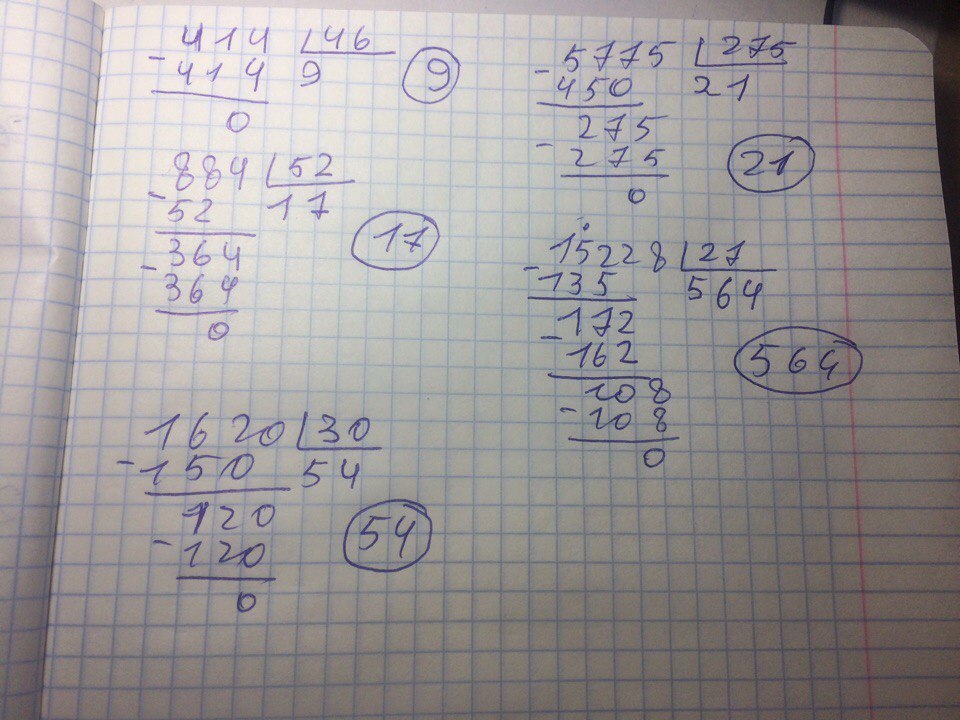 414 46
- 414 9 9
0
884 52
- 52 17
17
- 364
364
0
1620 30
- 150 54
120
- 120 54
0
- 5775 275
450 21
275
- 275 21
0
- 15228 27
135 564
- 172
162 564
108
- 108
0